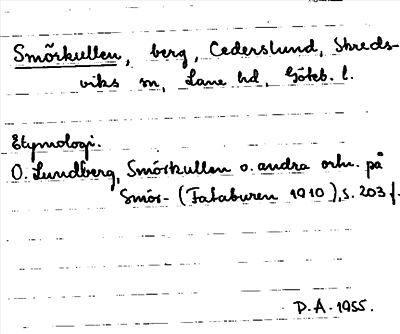 Smörkullen, berg, Cederslund, Skreds-
viks sn, Lane hd, Göteb. l.
Etymologi.
O. Lundberg, Smörkullen o. andra ortn. på
Smör- (Fataburen 1910), s. 203 f.
D.A. 1955.